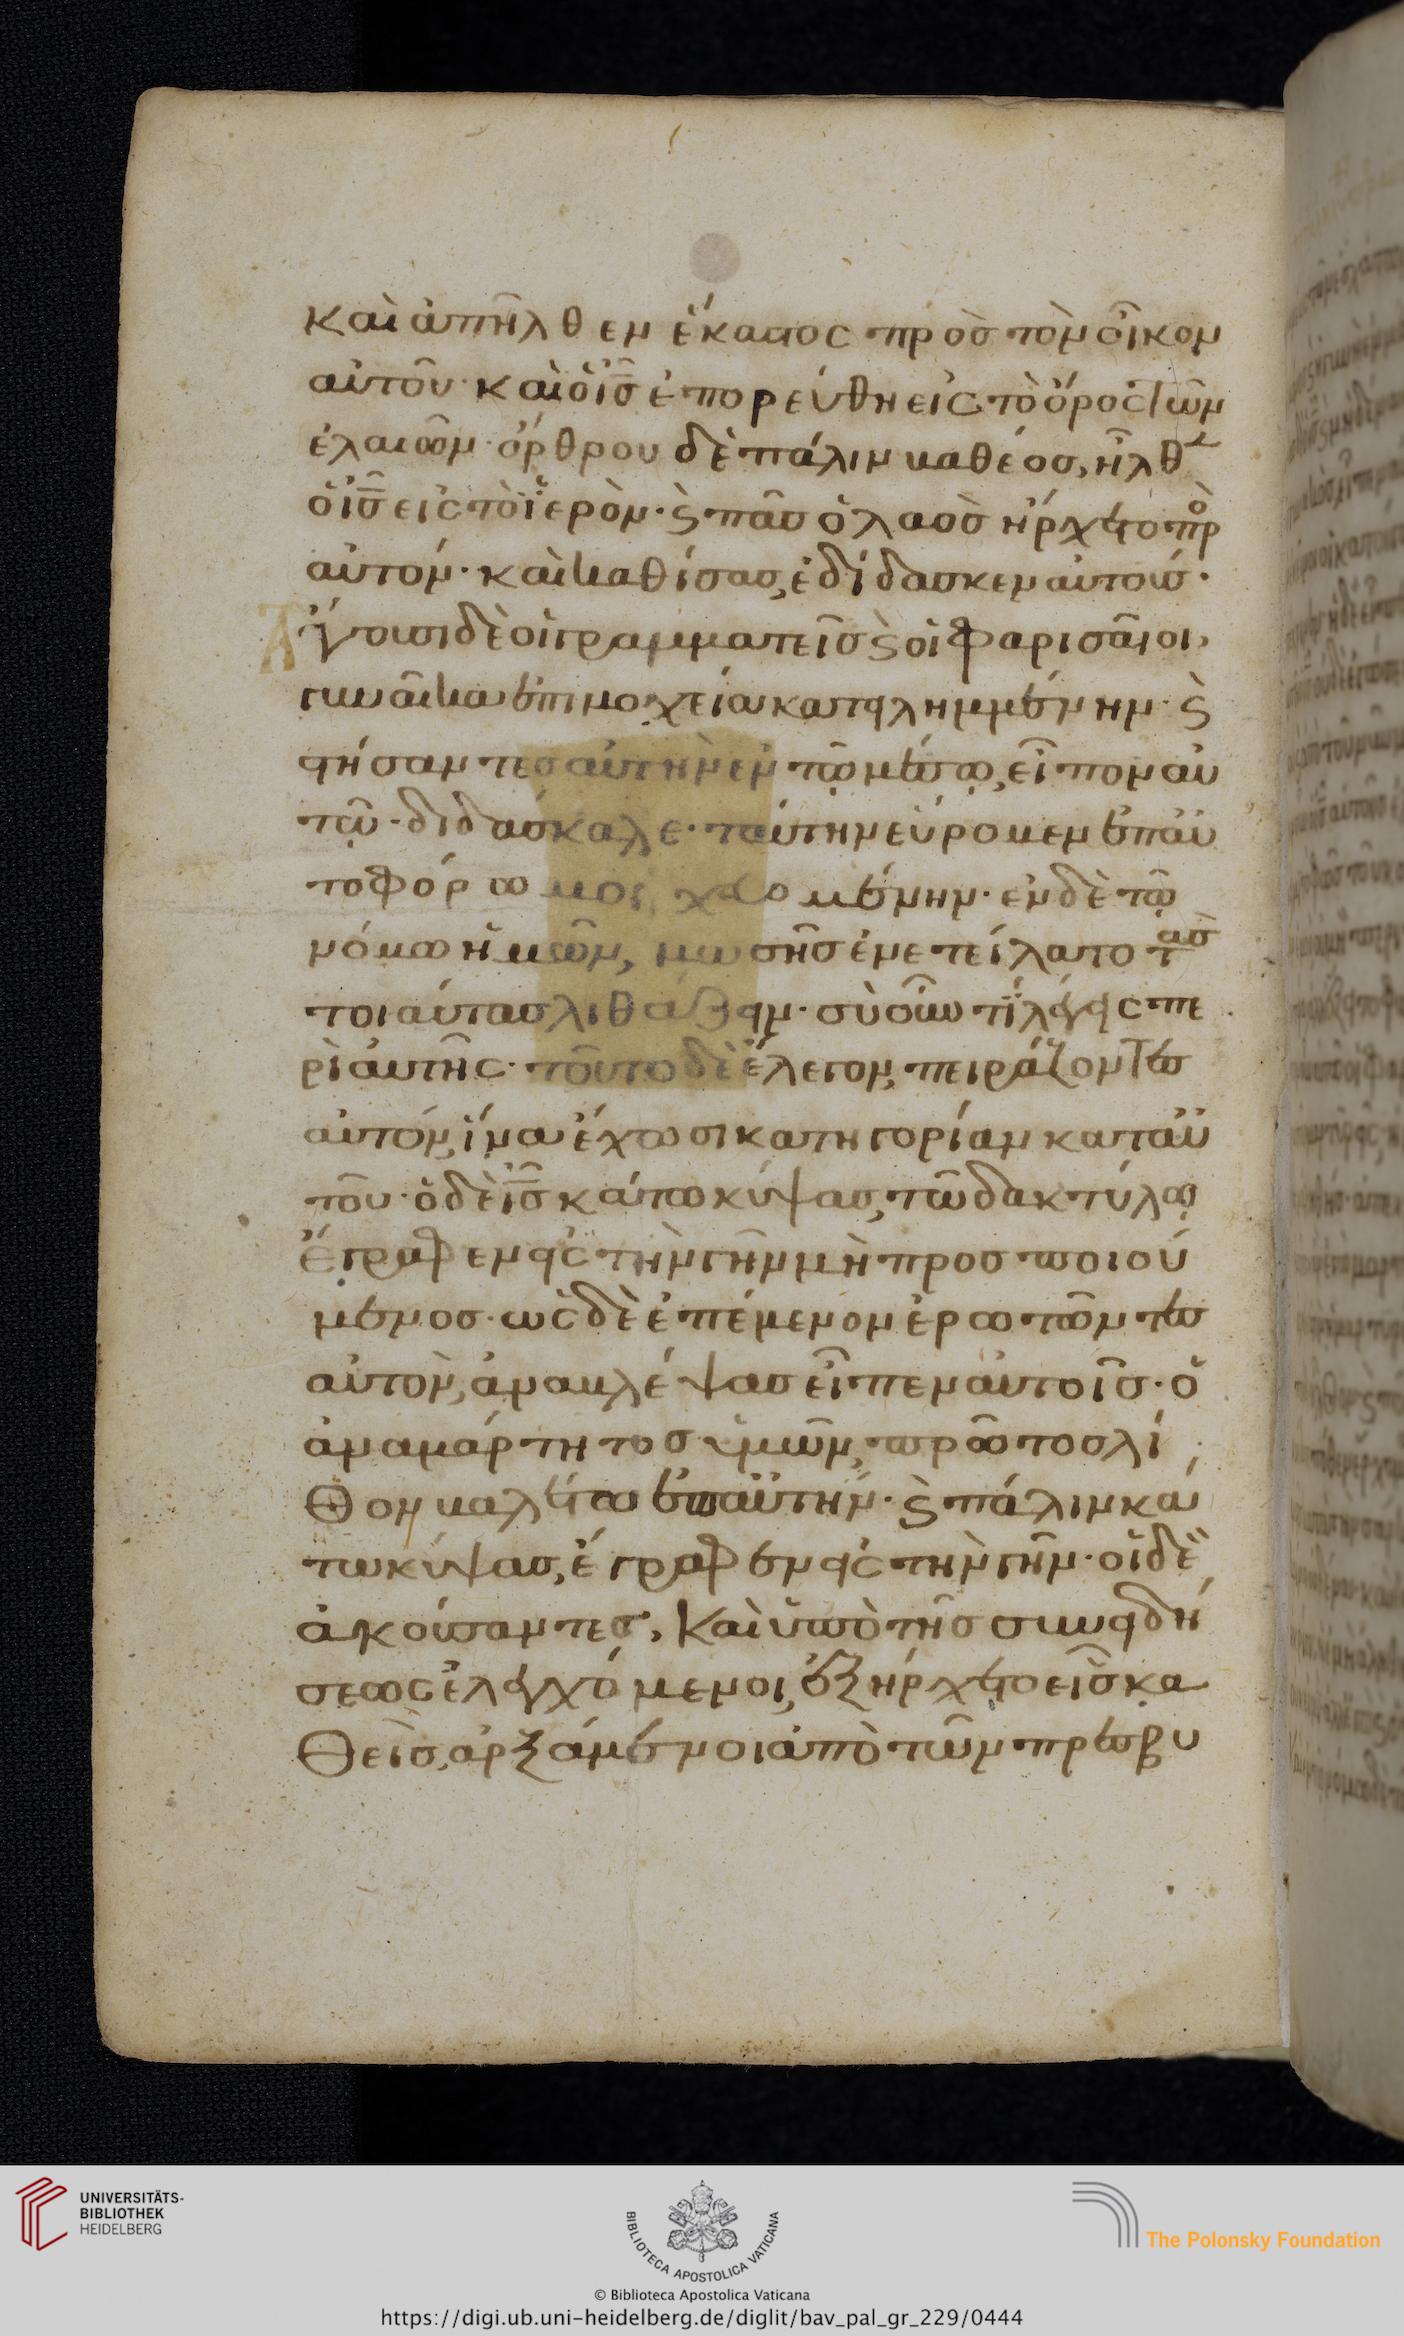 καὶ ἀπῆλθεν ἕκαστος πρὸς τὸν οἶκον
αὐτοῦ· καὶ ὁ ἰ̅ς̅ ἐπορεύθη εἰς τὸ ὄρος τῶν
ἐλαιῶν· ὄρθρου δὲ πάλιν βαθέος, ἦλθε
ὁ ἰ̅ς̅ εἰς τὸ ἱερὸν· ϗ πᾶς ὁ λαὸς ἤρχετο πρὸ
αὐτόν· καὶ καθίσας, ἐδίδασκεν αὐτούς·
Ἄγουσι δὲ οἱ γραμματεῖς ϗ οἱ φαρισαῖοι,
γυναῖκα ἐπι μοιχεία κατειλημμένην· ϗ
στήσαντες αὐτὴν ἐν τῷ μέσῳ, εἶπον αὐ
τῷ· διδάσκαλε· ταύτην εὕρομεν ἐπαυ
τοφόρω μοιχευομένην· ἐν δὲ τῷ
νόμω ἡμῶν, μωσῆς ἐνετείλατο τὰς
τοιαύτας λιθάζειν· σὺ οὖν τί λέγεις πε
ρὶ αὐτῆς· τοῦτο δὲ ἔλεγον, πειράζοντες
αὐτόν, ἵνα ἔχωσι κατηγορίαν κατ αὐ
τοῦ· ὁ δὲ ἰ̅ς̅ κάτω κύψας, τῶ δακτύλῳ
ἔγραφεν εἰς τὴν γῆν μὴ προσποιού
μενος· ὡς δὲ ἐπέμενον ἐρωτῶντες
αὐτὸν, ἀναβλέψας εἶπεν αὐτοῖς· ὁ
ἀναμάρτητος ὑμῶν, πρῶτος λί
θον βαλέτω ἐπ αὐτήν· ϗ πάλιν κά
τω κύψας, ἔγραφεν εἰς τὴν γῆν· οἱ δὲ
ἀκούσαντες, καὶ ὑπὸ τῆς συνειδή
σεως ἐλεγχόμενοι, ἐξήρχετο εἷς κα
θεῖς, ἀρξάμενοι ἀπὸ τῶν πρεσβυ
UNIVERSITÄTS-
BIBLIOTHEK
HEIDELBERG
BIBLIOTECA APOSTOLICA VATICANA
The Polonsky Foundation
© Biblioteca Apostolica Vaticana
https://digi.ub.uni-heidelberg.de/diglit/bav_pal_gr_229/0444